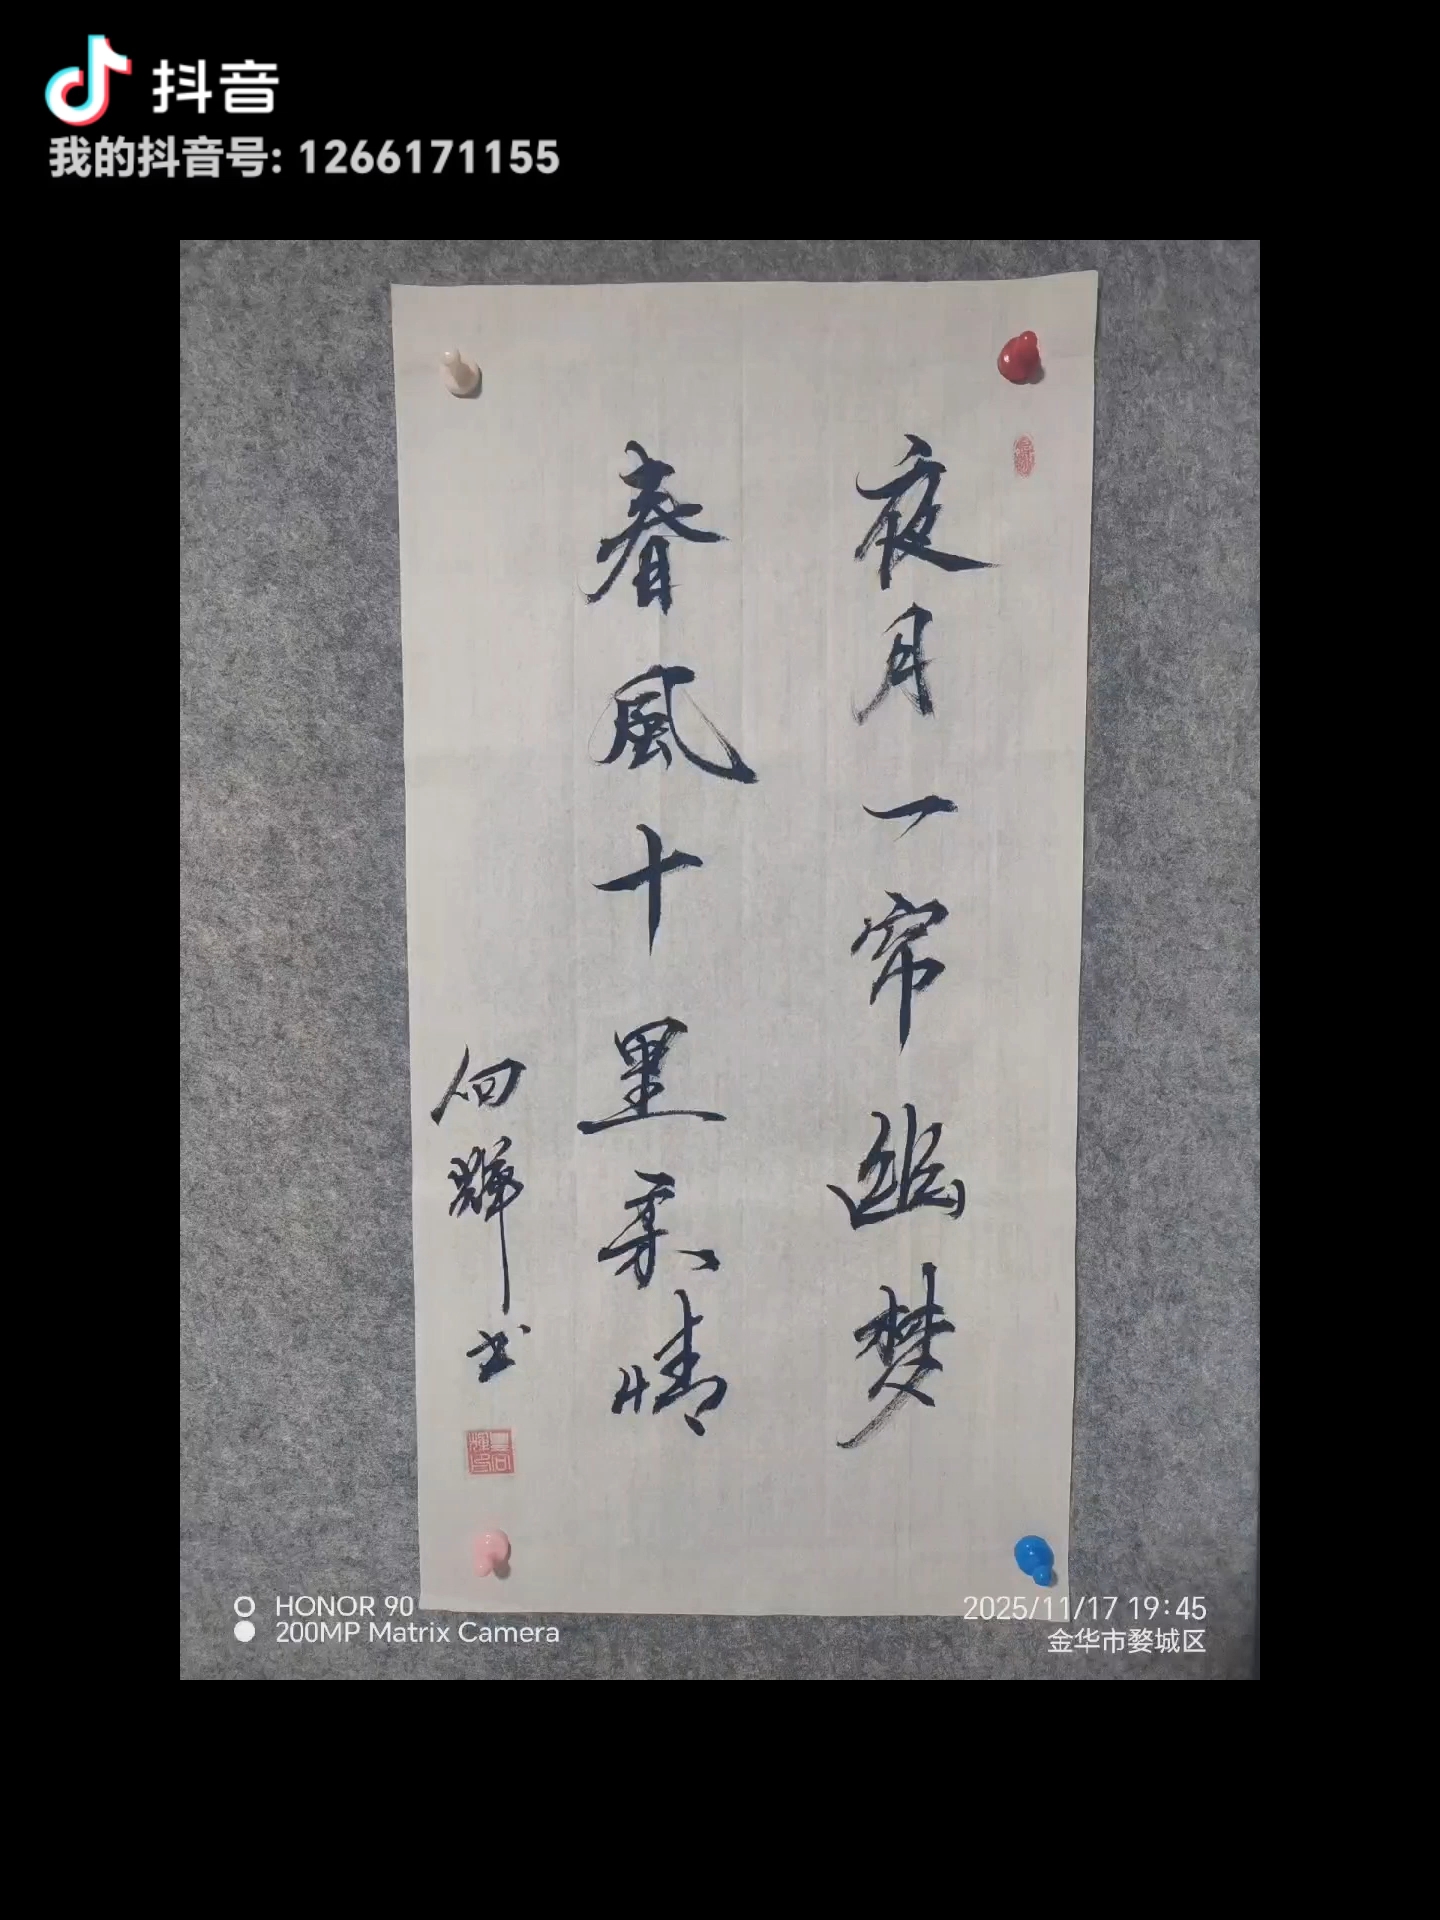 抖音
我的抖音号: 1266171155
夜月一帘幽梦
春風十里柔情
向輝书
HONOR 90
200MP Matrix Camera
2025/11/17 19:45
金华市婺城区